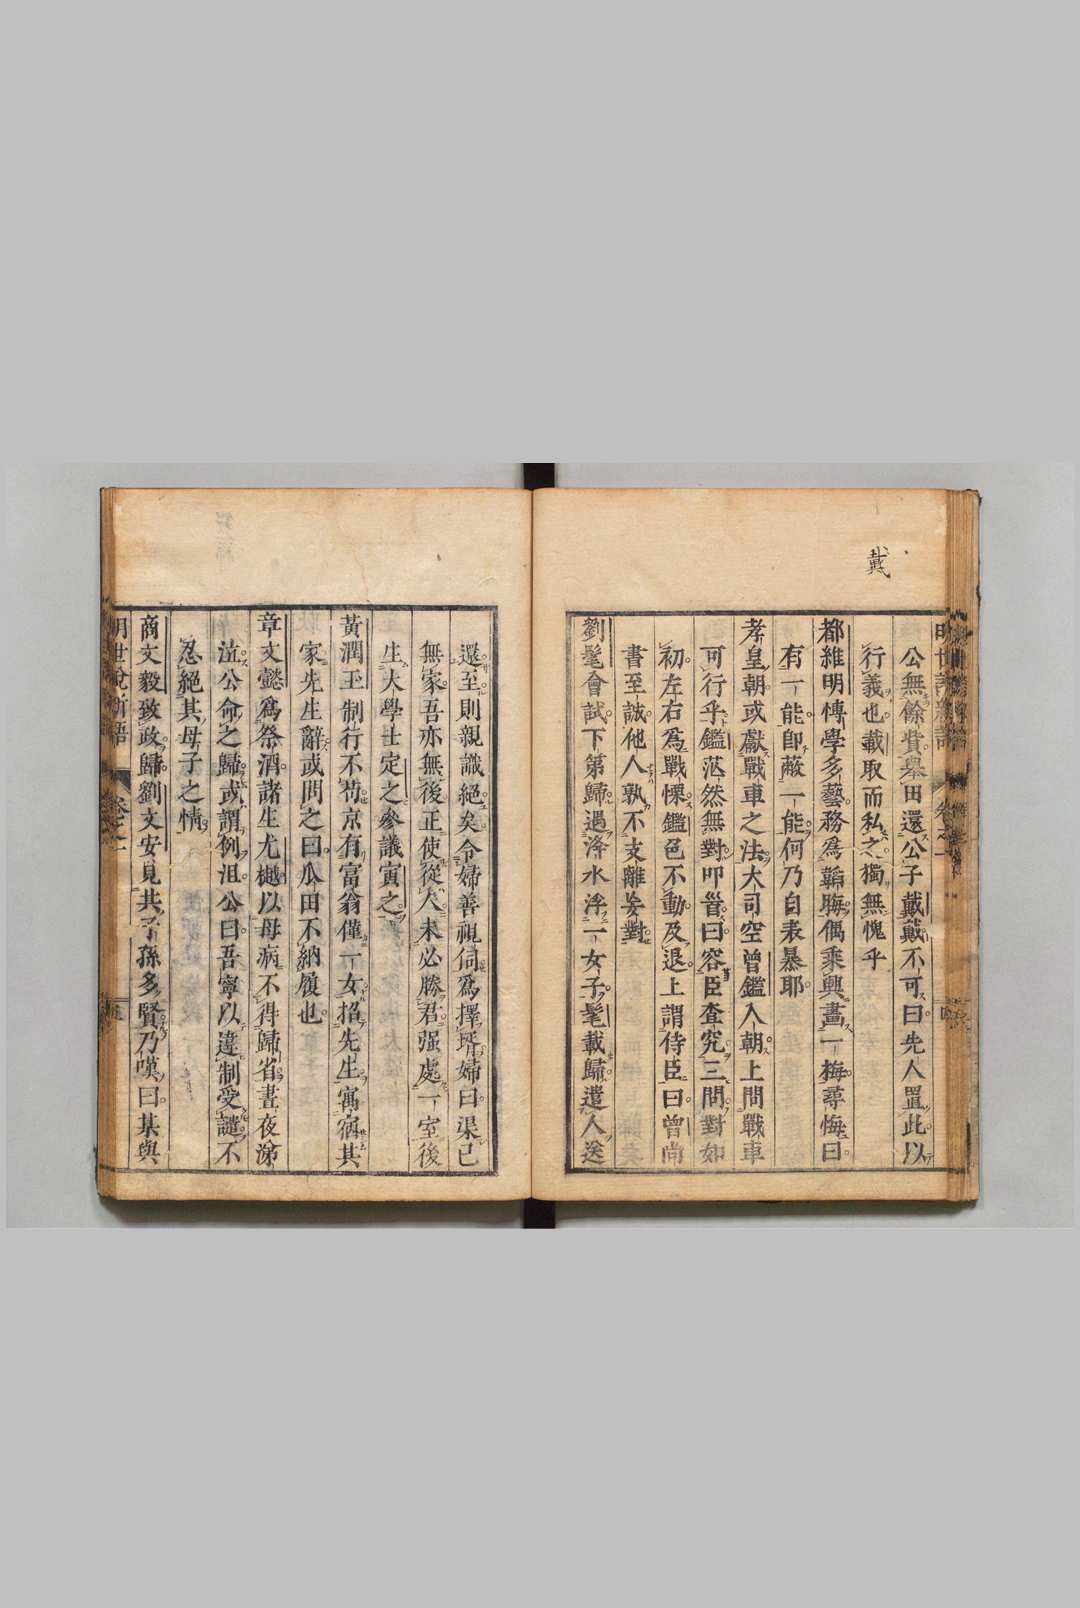 戴
公無餘貲舉田還公子戴戴不可曰先人置此以
行義也戴取而私之獨無愧乎
都維明慱學多藝務爲韜晦偶乘興畫一梅尋悔曰
有一能卽蔽一能何乃自表暴耶
孝皇朝或獻戰車之法大司空曾鑑入朝上問戰車
可行乎鑑茫然無對叩首曰容臣查究三問對如
初左右爲戰慄鑑色不動及退上謂侍臣曰曾尚
書至誠他人孰不支離妄對
劉髦會試下第歸遇滌水浮一女子髦載歸遣人送
還至則親識絕矣令婦善視伺爲擇壻婦曰渠已
無家吾亦無後正使從人未必勝君强處一室後
生大學士定之參議寅之
黃潤玉制行不苟京有富翁僅一女招先生寓宿其
家先生辭或問之曰瓜田不納履也
章文懿爲祭酒諸生尤樾以母病不得歸省晝夜涕
泣公命之歸或謂例沮公曰吾寧以違制受譴不
忍絕其母子之情
商文毅致政歸劉文安見其子孫多賢乃嘆曰某與
明世說新語 卷之一 五